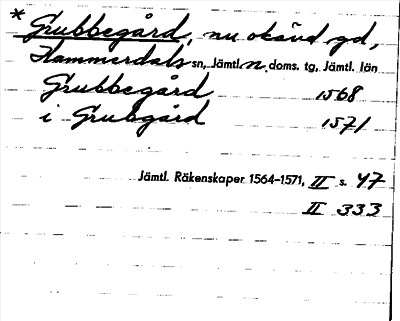 * Grubbegård, nu okänd gd,
Hammerdals sn, Jämtl. n. doms. tg, Jämtl. län
Grubbegård 1568
i Grubgård 1571
Jämtl. Räkenskaper 1564-1571, II s. 47
II 333